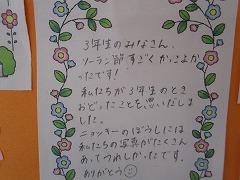 3年生のみなさん、
ソーラン節すごくかっこよか
ったです!
私たちが3年生のとき
おどったことを、思いだしま
した。
ニョッキーのぼうしには
私たちの写真がたくさん
あってうれしかったです。
ありがとう☺